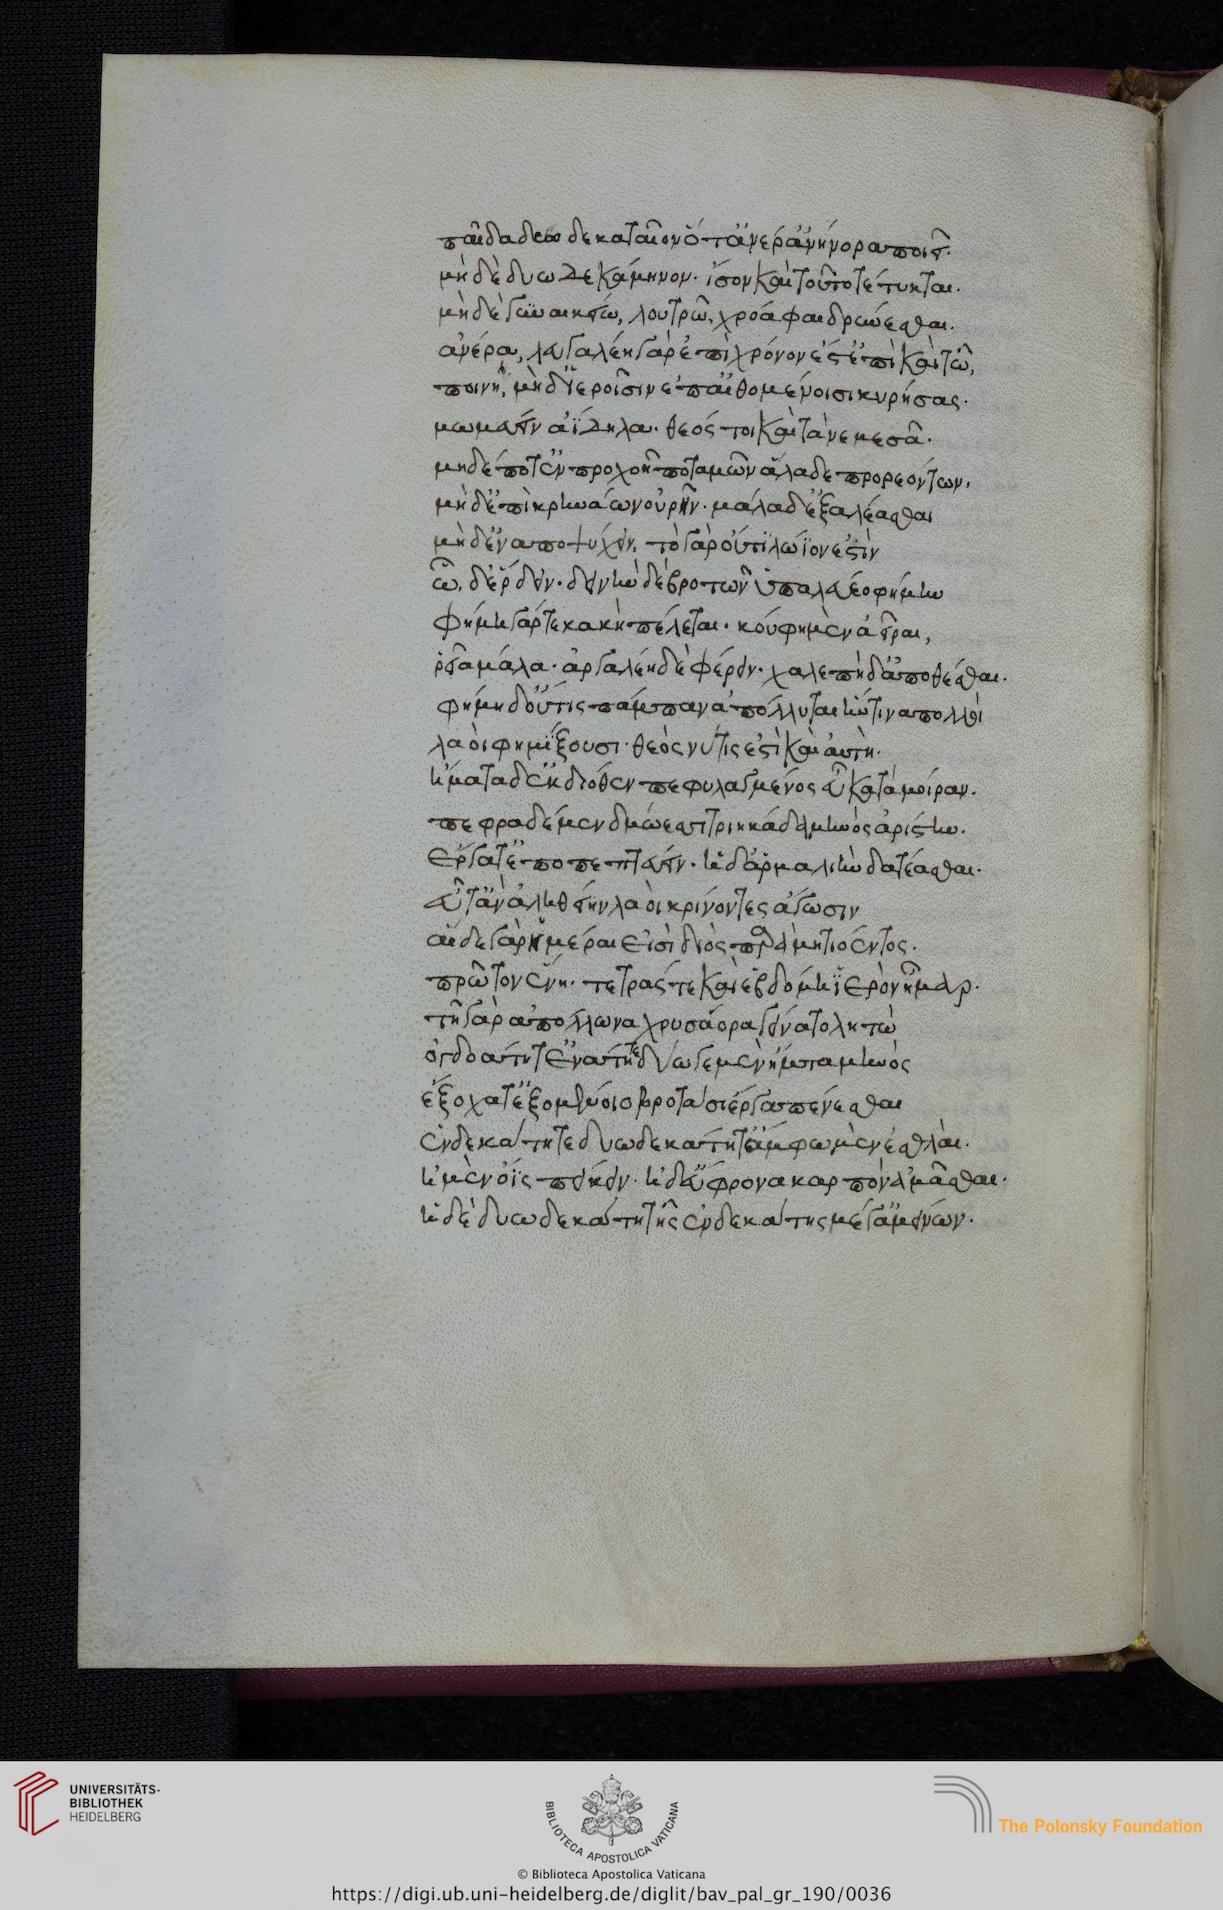 παῖδα δυω δεκαταῖον ὅ τ' ἀνέρ' ἀνήνορα ποιεῖ.
μὴ δὲ δυωδεκάμηνον. ἴσον καὶ τοῦτο τέτυκται.
μὴ δὲ γυναικείω, λουτρῶ, χρόα φαιδρύνεσθαι.
ἀνέρα, λευγαλέη γὰρ ἐπὶ χρόνον ἐς ἐπὶ καὶ τῶ,
ποινή, μὴ δ' ἱεροῖσιν ἐπ' αἰθομένοισι κυρήσας.
μωμεύειν ἀΐδηλα. θεός τοι καὶ τὰ νεμεσᾶ.
μηδέ ποτ' ἐν προχοῆ ποταμῶν ἅλαδε προρεόντων,
μὴ δ' ἐπὶ κρηνάων οὐρεῖν. μάλα δ' ἐξαλέασθαι
μὴ δ' ἐναποψύχειν, τὸ γὰρ οὔτι λώϊόν ἐστὶν
ὧ, δ' ἔρδειν. δεινὴν δὲ βροτῶν ὑπαλεύεο φήμην
φήμη γάρ τε κακὴ πέλεται. κούφη μὲν ἀεῖραι,
ῥεῖα μάλα. ἀργαλέη δὲ φέρειν. χαλεπὴ δ' ἀποθέσθαι.
φήμη δ' οὔτις πάμπαν ἀπόλλυται ἥν τινα πολλοὶ
λαὸι φημίξουσι. θεὸς νυ τις ἐστὶ καὶ ἀυτὴ.
ἤματα δ' ἐκ διόθεν πεφυλαγμένος εὖ κατὰ μοίραν.
πεφραδέμεν δμώεσσι τριηκάδα μηνὸς ἀρίστην.
ἔργα τ' ἐποπτεύειν. ἠδ' ἁρμαλιὴν δατέασθαι.
εὖτ' ἂν ἀληθείην λαὸι κρίνοντες ἄγωσιν
αἵδε γὰρ ἡμέραι εἰσὶ διὸς παρὰ μητιόεντος.
πρῶτον ἕνη. τετράς τε καὶ ἑβδόμη ἱερὸν ἦμαρ.
τῆ γὰρ ἀπόλλωνα χρυσάορα γείνατο λητὼ
ὀγδοάτη τ' ἐνάτη τε δύω γε μὲν ἤματα μηνὸς
ἔξοχα τ' ἐξομένοιο βροτήσι' ἔργα πένεσθαι
ἑνδεκάτη τε δυωδεκάτη τ' ἄμφω μὲν ἐσθλὰι.
ἠμὲν ὄϊς πείκειν. ἠδ' εὔφρονα καρπὸν ἀμᾶσθαι.
ἡ δὲ δυωδεκάτη τῆς ἑνδεκάτης μέγ' ἀμείνων.
UNIVERSITÄTS-
BIBLIOTHEK
HEIDELBERG
BIBLIOTECA APOSTOLICA VATICANA
The Polonsky Foundation
© Biblioteca Apostolica Vaticana
https://digi.ub.uni-heidelberg.de/diglit/bav_pal_gr_190/0036